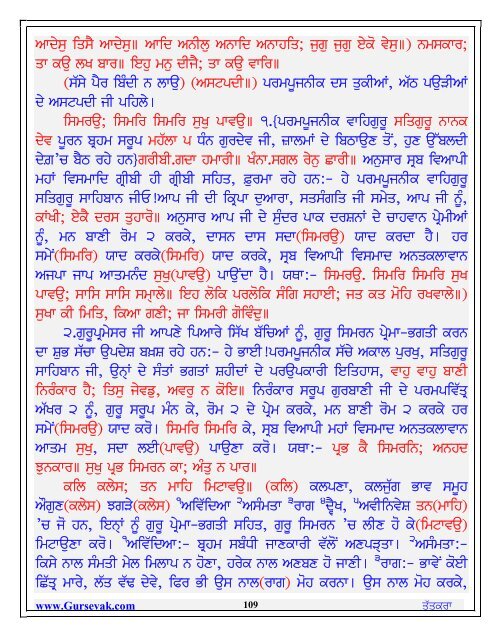 ਆਦੇਸੁ ਤਿਸੈ ਆਦੇਸੁ॥ ਆਦਿ ਅਨੀਲੁ ਅਨਾਦਿ ਅਨਾਹਤਿ; ਜੁਗੁ ਜੁਗੁ ਏਕੋ ਵੇਸੁ॥) ਨਮਸਕਾਰ;
ਤਾ ਕਉ ਲਖ ਬਾਰ॥ ਇਹੁ ਮਨੁ ਦੀਜੈ; ਤਾ ਕਉ ਵਾਰਿ॥
(ਸੱਸੇ ਪੈਰ ਬਿੰਦੀ ਨ ਲਾਉ) (ਅਸਟਪਦੀ॥) ਪਰਮਪੂਜਨੀਕ ਦਸ ਤੁਕੀਆਂ, ਅੱਠ ਪਉੜੀਆਂ
ਦੇ ਅਸਟਪਦੀ ਜੀ ਪਹਿਲੇ।
ਸਿਮਰਉ; ਸਿਮਰਿ ਸਿਮਰਿ ਸੁਖੁ ਪਾਵਉ॥ ੧.{ਪਰਮਪੂਜਨੀਕ ਵਾਹਿਗੁਰੂ ਸਤਿਗੁਰੂ ਨਾਨਕ
ਦੇਵ ਪੂਰਨ ਬ੍ਰਹਮ ਸਰੂਪ ਮਹੱਲਾ ੫ ਧੰਨ ਗੁਰਦੇਵ ਜੀ, ਜ਼ਾਲਮਾਂ ਦੇ ਬਿਠਾਉਣ ਤੋਂ, ਹੁਣ ਉੱਬਲਦੀ
ਦੇਗ਼'ਚ ਬੈਠ ਰਹੇ ਹਨ}ਗਰੀਬੀ.ਗਦਾ ਹਮਾਰੀ॥ ਖੰਨਾ.ਸਗਲ ਰੇਨੁ ਛਾਰੀ॥ ਅਨੁਸਾਰ ਸ੍ਰਬ ਵਿਆਪੀ
ਮਹਾਂ ਵਿਸਮਾਦਿ ਗ੍ਰੀਬੀ ਹੀ ਗ੍ਰੀਬੀ ਸਹਿਤ, ਫ਼ੁਰਮਾ ਰਹੇ ਹਨ:- ਹੇ ਪਰਮਪੂਜਨੀਕ ਵਾਹਿਗੁਰੂ
ਸਤਿਗੁਰੂ ਸਾਹਿਬਾਨ ਜੀਓ!ਆਪ ਜੀ ਦੀ ਕ੍ਰਿਪਾ ਦੁਆਰਾ, ਸਤਸੰਗਤਿ ਜੀ ਸਮੇਤ, ਆਪ ਜੀ ਨੂੰ,
ਕਾਂਖੀ; ਏਕੈ ਦਰਸ ਤੁਹਾਰੋ॥ ਅਨੁਸਾਰ ਆਪ ਜੀ ਦੇ ਸੁੰਦਰ ਪਾਕ ਦਰਸ਼ਨਾਂ ਦੇ ਚਾਹਵਾਨ ਪ੍ਰੇਮੀਆਂ
ਨੂੰ, ਮਨ ਬਾਣੀ ਰੋਮ ੨ ਕਰਕੇ, ਦਾਸਨ ਦਾਸ ਸਦਾ(ਸਿਮਰਉ) ਯਾਦ ਕਰਦਾ ਹੈ। ਹਰ
ਸਮੇਂ(ਸਿਮਰਿ) ਯਾਦ ਕਰਕੇ(ਸਿਮਰਿ) ਯਾਦ ਕਰਕੇ, ਸ੍ਰਬ ਵਿਆਪੀ ਵਿਸਮਾਦ ਅਨਤਕਲਾਵਾਨ
ਅਜਪਾ ਜਾਪ ਆਤਮਨੰਦ ਸੁਖੁ(ਪਾਵਉ) ਪਾਉਂਦਾ ਹੈ। ਯਥਾ:- ਸਿਮਰਉ. ਸਿਮਰਿ ਸਿਮਰਿ ਸੁਖ
ਪਾਵਉ; ਸਾਸਿ ਸਾਸਿ ਸਮਾੑਲੇ॥ ਇਹ ਲੋਕਿ ਪਰਲੋਕਿ ਸੰਗਿ ਸਹਾਈ; ਜਤ ਕਤ ਮੋਹਿ ਰਖਵਾਲੇ॥)
ਸੁਖਾ ਕੀ ਮਿਤਿ, ਕਿਆ ਗਣੀ; ਜਾ ਸਿਮਰੀ ਗੋਵਿੰਦੁ॥
੨.ਗੁਰੂਪ੍ਰਮੇਸਰ ਜੀ ਆਪਣੇ ਪਿਆਰੇ ਸਿੱਖ ਬੱਚਿਆਂ ਨੂੰ, ਗੁਰੂ ਸਿਮਰਨ ਪ੍ਰੇਮਾ-ਭਗਤੀ ਕਰਨ
ਦਾ ਸ਼ੁਭ ਸੱਚਾ ਉਪਦੇਸ਼ ਬਖ਼ਸ਼ ਰਹੇ ਹਨ:- ਹੇ ਭਾਈ !ਪਰਮਪੂਜਨੀਕ ਸੱਚੇ ਅਕਾਲ ਪੁਰਖੁ, ਸਤਿਗੁਰੂ
ਸਾਹਿਬਾਨ ਜੀ, ਉਨ੍ਹਾਂ ਦੇ ਸੰਤਾਂ ਭਗਤਾਂ ਸ਼ਹੀਦਾਂ ਦੇ ਪਰਉਪਕਾਰੀ ਇਤਿਹਾਸ, ਵਾਹੁ ਵਾਹੁ ਬਾਣੀ
ਨਿਰੰਕਾਰ ਹੈ; ਤਿਸੁ ਜੇਵਡੁ, ਅਵਰੁ ਨ ਕੋਇ॥ ਨਿਰੰਕਾਰ ਸਰੂਪ ਗੁਰਬਾਣੀ ਜੀ ਦੇ ਪਰਮਪਵਿੱਤ੍ਰ
ਅੱਖਰ ੨ ਨੂੰ, ਗੁਰੂ ਸਰੂਪ ਮੰਨ ਕੇ, ਰੋਮ ੨ ਦੇ ਪ੍ਰੇਮ ਕਰਕੇ, ਮਨ ਬਾਣੀ ਰੋਮ ੨ ਕਰਕੇ ਹਰ
ਸਮੇਂ(ਸਿਮਰਉ) ਯਾਦ ਕਰੋ। ਸਿਮਰਿ ਸਿਮਰਿ ਕੇ, ਸ੍ਰਬ ਵਿਆਪੀ ਮਹਾਂ ਵਿਸਮਾਦ ਅਨਤਕਲਾਵਾਨ
ਆਤਮ ਸੁਖੁ, ਸਦਾ ਲਈ(ਪਾਵਉ) ਪਾਉਣਾ ਕਰੋ। ਯਥਾ:- ਪ੍ਰਭ ਕੈ ਸਿਮਰਨਿ; ਅਨਹਦ
ਝੁਨਕਾਰ॥ ਸੁਖੁ ਪ੍ਰਭ ਸਿਮਰਨ ਕਾ; ਅੰਤੁ ਨ ਪਾਰ॥
ਕਲਿ ਕਲੇਸ; ਤਨ ਮਾਹਿ ਮਿਟਾਵਉ॥ (ਕਲਿ) ਕਲਪਣਾ, ਕਲਜੁੱਗ ਭਾਵ ਸਮੂਹ
ਔਗੁਣ(ਕਲੇਸ) ਝਗੜੇ(ਕਲੇਸ) ੧ਅਵਿੱਦਿਆ ੨ਅਸੰਮਤਾ ੩ਰਾਗ ੪ਦ੍ਵੈਖ, ੫ਅਵੀਨਿਵੇਸ਼ ਤਨ(ਮਾਹਿ)
'ਚ ਜੋ ਹਨ, ਇਨ੍ਹਾਂ ਨੂੰ ਗੁਰੂ ਪ੍ਰੇਮਾ-ਭਗਤੀ ਸਹਿਤ, ਗੁਰੂ ਸਿਮਰਨ 'ਚ ਲੀਣ ਹੋ ਕੇ(ਮਿਟਾਵਉ)
ਮਿਟਾਉਣਾ ਕਰੋ। ੧ਅਵਿੱਦਿਆ:- ਬ੍ਰਹਮ ਸਬੰਧੀ ਜਾਣਕਾਰੀ ਵੱਲੋਂ ਅਣਪੜ੍ਹਤਾ। ੨ਅਸੰਮਤਾ:-
ਕਿਸੇ ਨਾਲ ਸੰਮਤੀ ਮੇਲ ਮਿਲਾਪ ਨ ਹੋਣਾ, ਹਰੇਕ ਨਾਲ ਅਣਬਣ ਹੋ ਜਾਣੀ। ੩ਰਾਗ:- ਭਾਵੇਂ ਕੋਈ
ਛਿੱਤ੍ਰ ਮਾਰੇ, ਲੱਤ ਵੱਢ ਦੇਵੇ, ਫਿਰ ਭੀ ਉਸ ਨਾਲ(ਰਾਗ) ਮੋਹ ਕਰਨਾ। ਉਸ ਨਾਲ ਮੋਹ ਕਰਕੇ,
www.Gursevak.com 109 ਤੱਤਕਰਾ